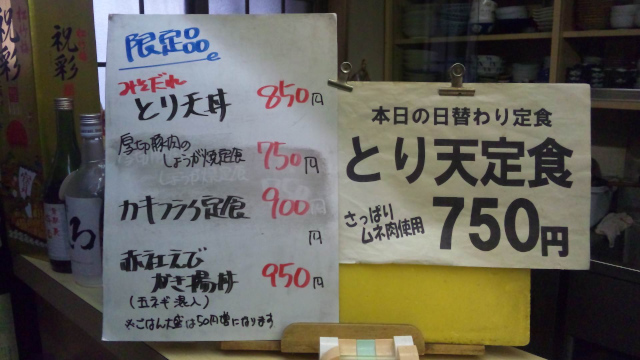 限定品
みそだれ
とり天丼 850円
厚切豚肉の
しょうが焼定食 750円
カキフライ定食 900円
赤社えび
かき揚丼 950円
(玉ネギ混入)
※ごはん大盛は50円増になります
本日の日替わり定食
とり天定食
さっぱり
ムネ肉使用
750円
祝彩
祝彩